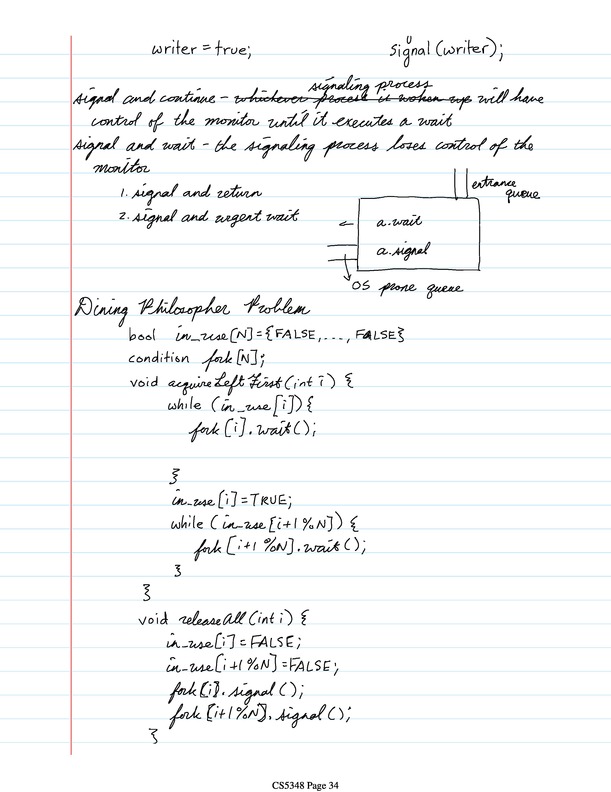 writer = true;
signal(writer);
signaling process
signal and continue - whichever process is woken up will have
control of the monitor until it executes a wait
signal and wait - the signaling process loses control of the
monitor
1. signal and return
2. signal and urgent wait
entrance
queue
a.wait
a.signal
OS prone queue
Dining Philosopher Problem
bool in_use[N]={FALSE,...,FALSE}
condition fork[N];
void acquireLeftFirst(int i) {
while (in_use[i]){
fork[i].wait();
}
in_use[i]=TRUE;
while (in_use[i+1%N]) {
fork[i+1%N].wait();
}
}
void releaseAll(int i) {
in_use[i]=FALSE;
in_use[i+1%N]=FALSE;
fork[i].signal();
fork[i+1%N].signal();
}
CS5348 Page 34